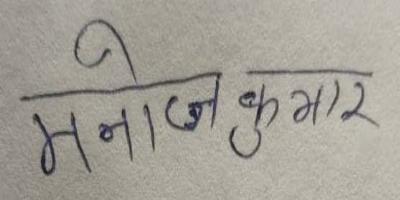 मनोज कुमार